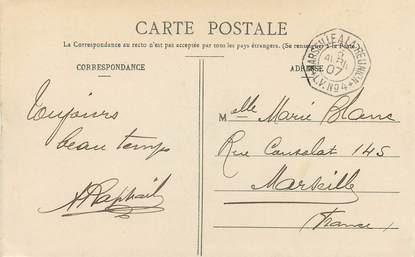 CARTE POSTALE
La Correspondance au recto n'est pas acceptée par tous les pays étrangers. (Se renseigner à la Poste)
CORRESPONDANCE
ADRESSE
MARSEILLE A LA RÉUNION
AVRIL
07
L.V. Nº4
Toujours
beau temps
ARaphaël
Melle Marie Blanc
Rue Consolat 145
Marseille
(France)